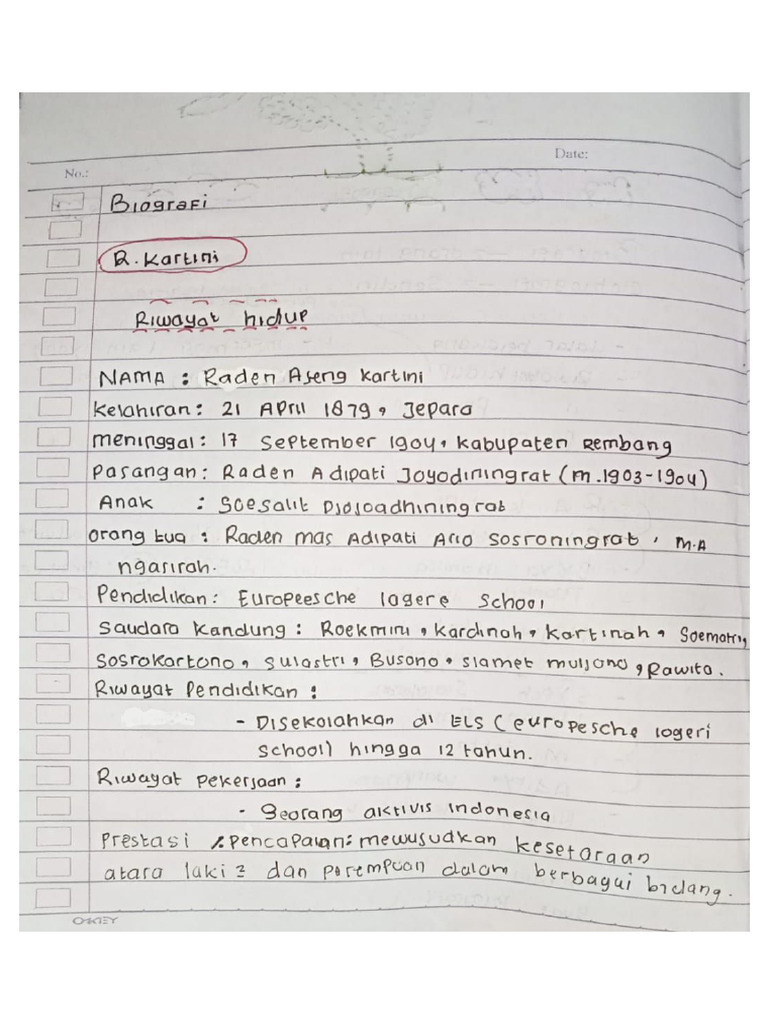 No.:
Date:
Biografi
R. Kartini
Riwayat hidup
NAMA : Raden Ajeng Kartini
Kelahiran : 21 April 1879, Jepara
meninggal : 17 September 1904, Kabupaten Rembang
Pasangan : Raden Adipati Joyodiningrat (m.1903-1904)
Anak : Soesalit Djojoadhiningrat
orang tua : Raden mas Adipati Ario Sosroningrat, M.A
ngasirah.
Pendidikan : Europeesche lagere School
Saudara kandung : Roekmini, Kardinah, Kartinah, Soematri,
Sosrokartono, Sulastri, Busono, Slamet muljono, Rawito.
Riwayat Pendidikan :
- Disekolahkan di ELS (europesche logeri
School) hingga 12 tahun.
Riwayat pekerjaan :
- Seorang aktivis indonesia
Prestasi /pencapaian : mewusudkan kesetaraan
atara laki2 dan perempuan dalam berbagui bidang.
OKEY